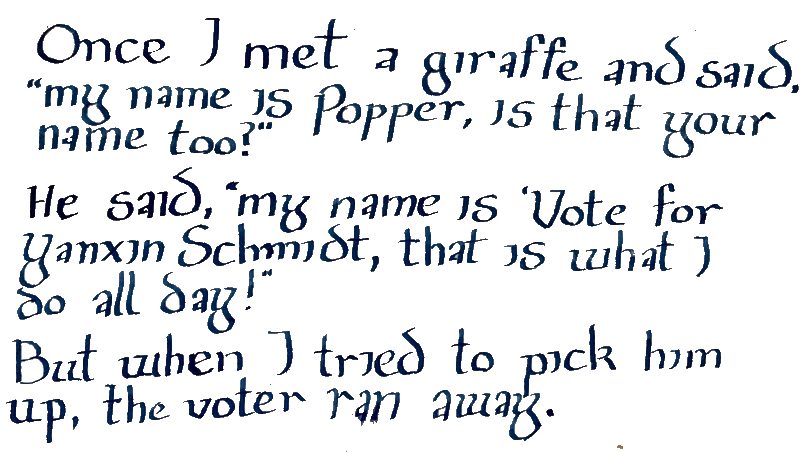 Once I met a giraffe and said,
“my name is Popper, is that your
name too?“
He said, “my name is ‘Vote for
Yanxin Schmidt, that is what I
do all day!“
But when I tried to pick him
up, the voter ran away.